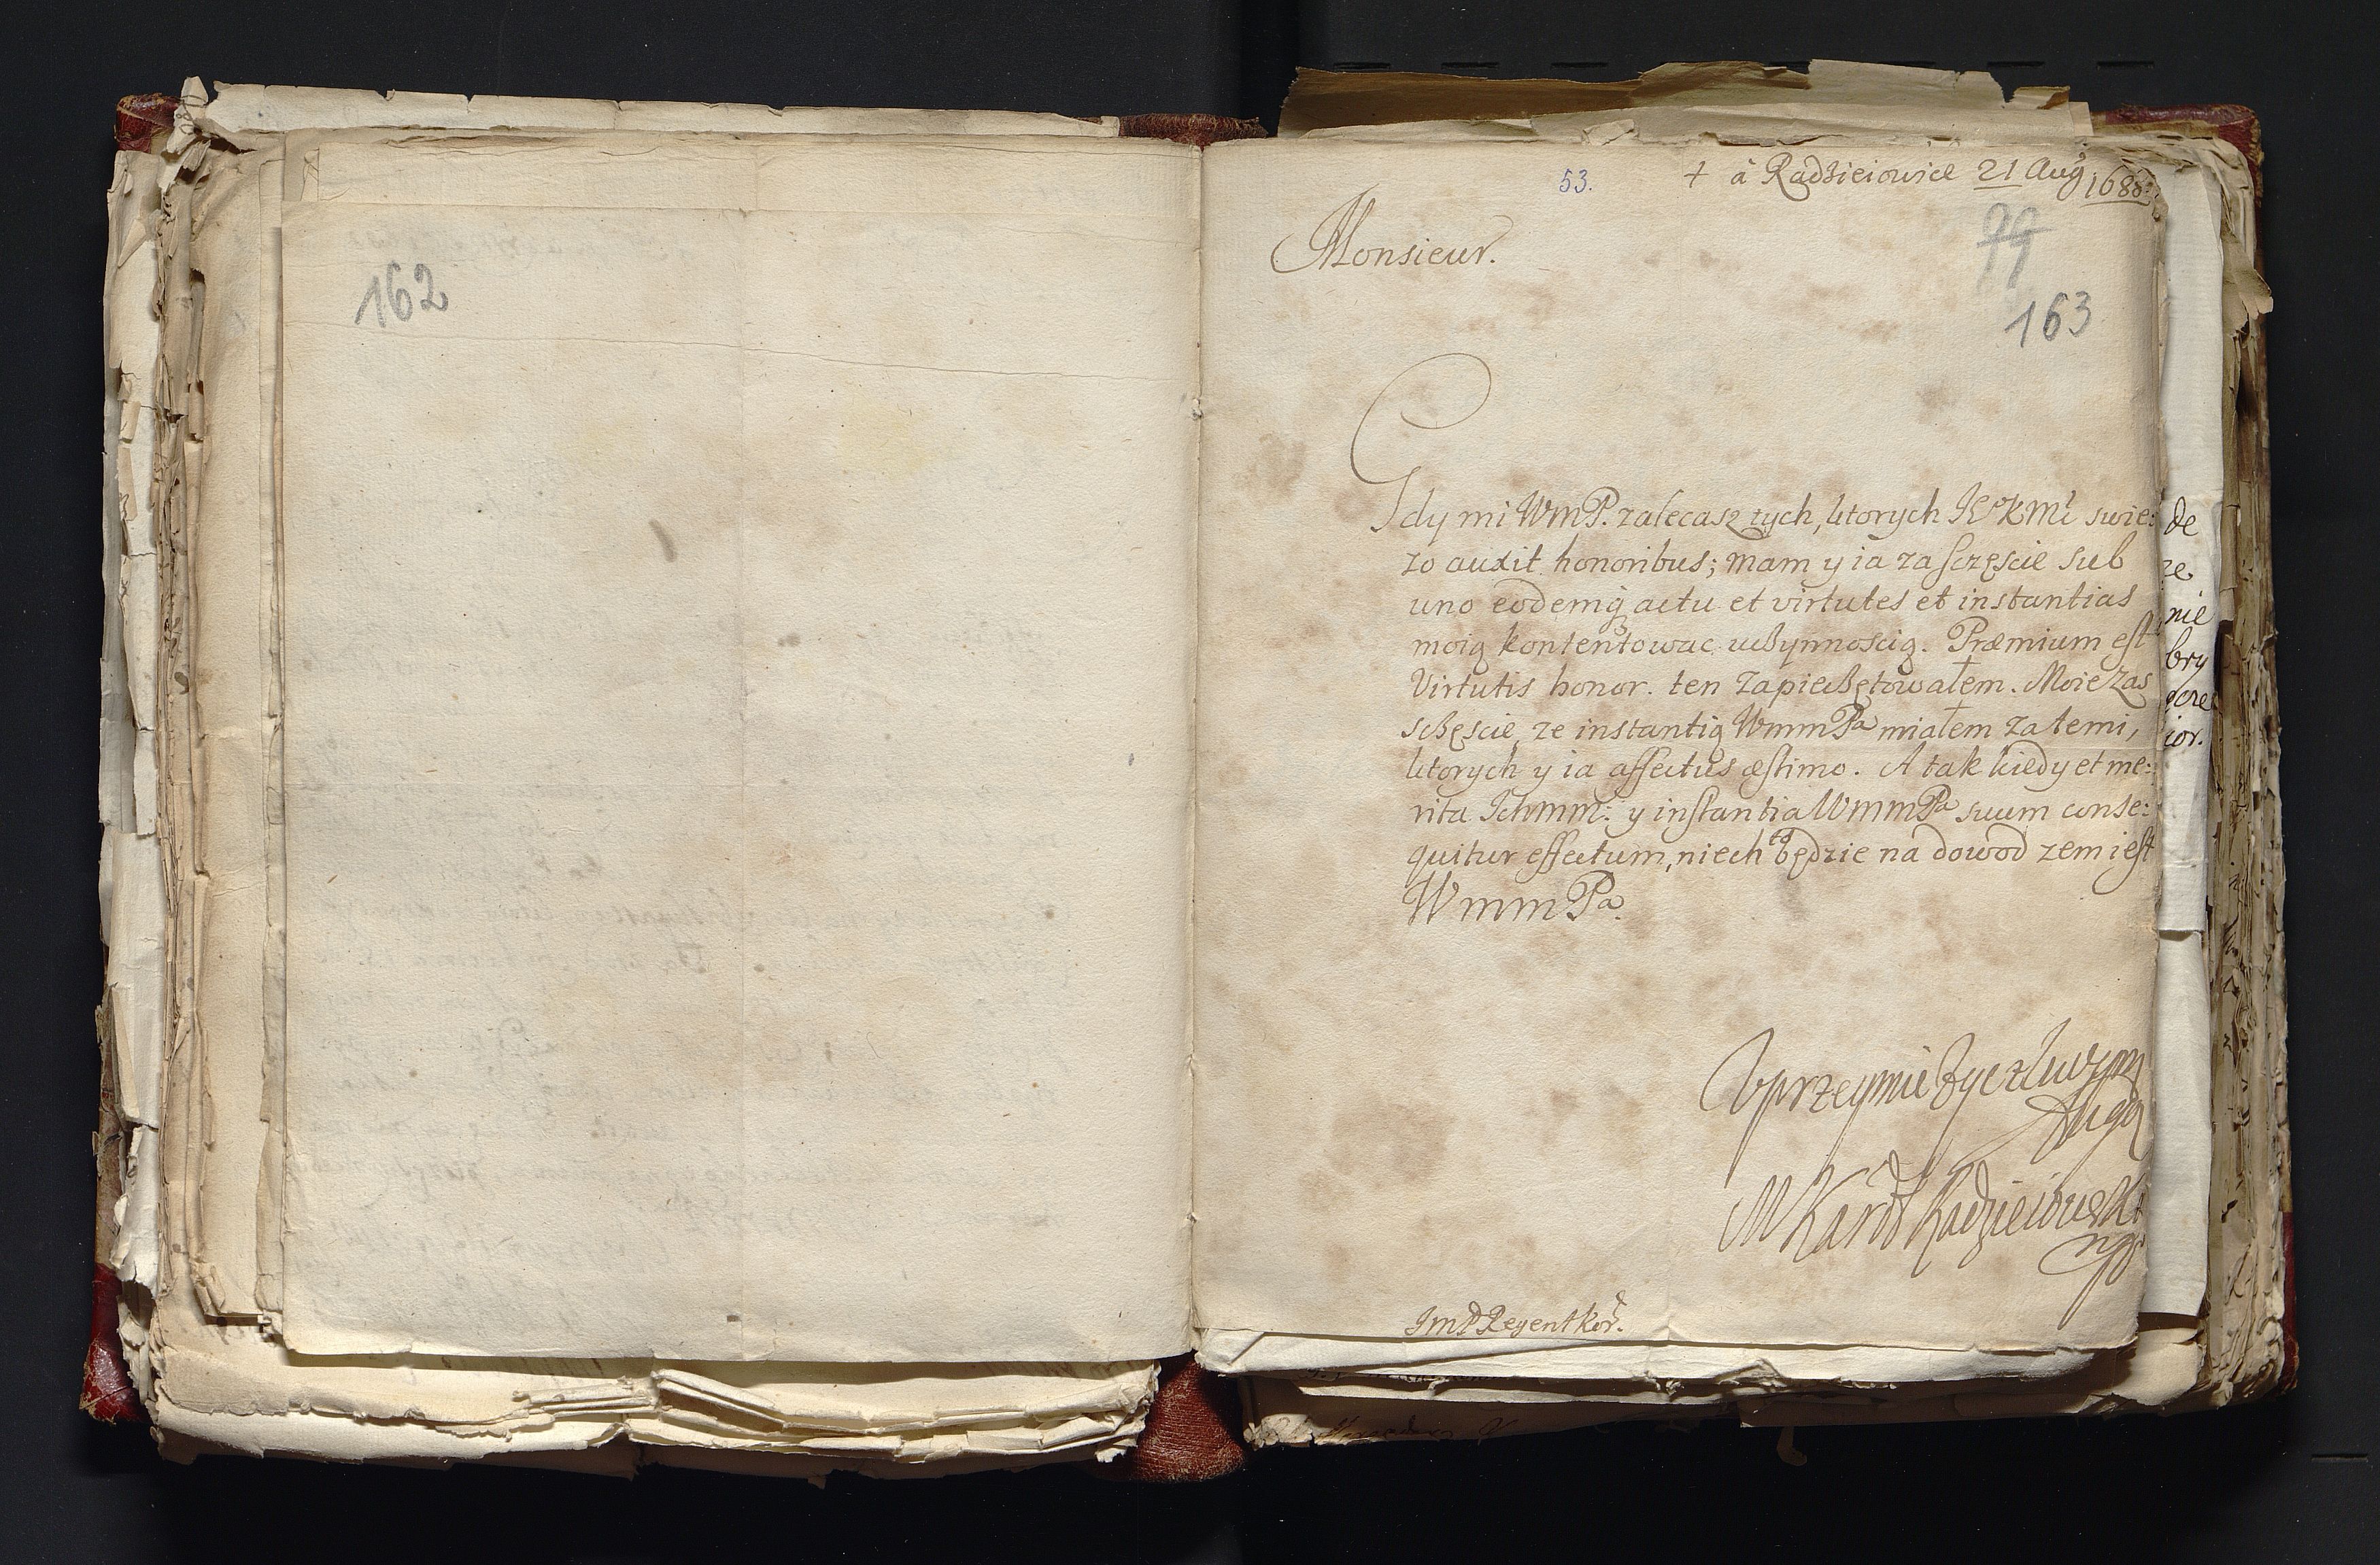 162
53. † à Radzieiowice 21 Aug: 1688:
99
163
Monsieur.
Gdy mi WmP. zalecasz tych, ktorych JKoKMć swie:
zo auxit honoribus; mam y ia za sczęscie sub
uno eodemq actu et virtutes et instantias
moią kontentowac uczynnoscią. Præmium est
Virtutis honor. ten zapieczętowałem. Moie zas
sczęscie, ze instantią WmmPa miałem za temi,
ktorych y ia affectus æstimo. A tak kiedy et me:
rita Ichmm: y instantia WmmPa suum conse:
quitur effectum, niech to będzie na dowod zem iest
WmmPa.
Uprzeymie zyczliwym
sługą
M Kard Radzieiowski
mp
JmP Regent Kor.
de
ze
nie
bry
ior.